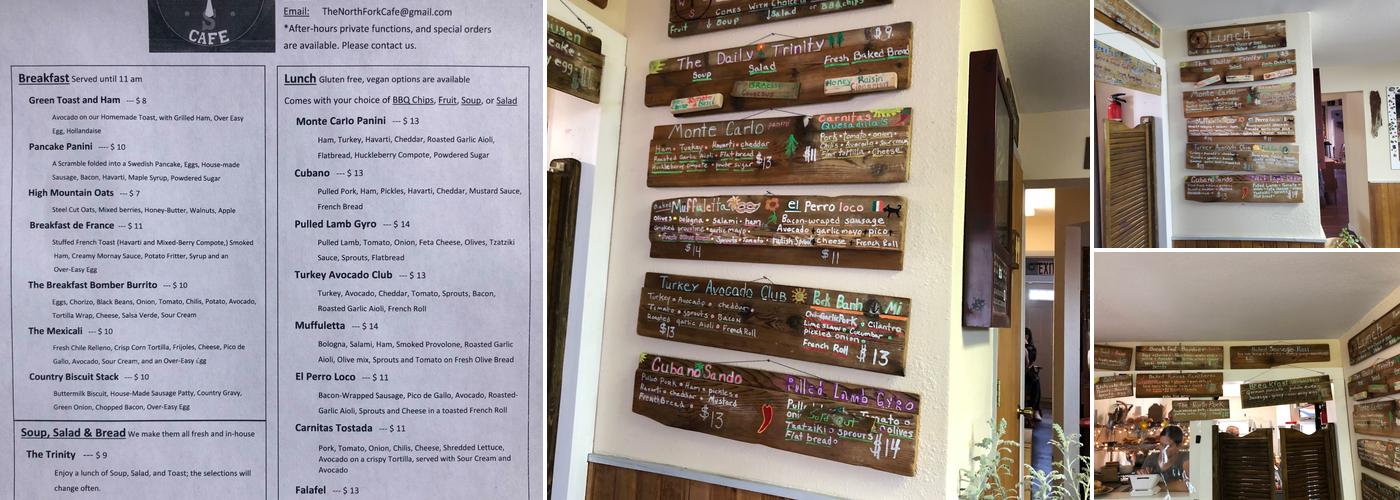 CAFE
Email: TheNorthForkCafe@gmail.com
*After-hours private functions, and special orders
are available. Please contact us.
Breakfast Served until 11 am
Green Toast and Ham --- $ 8
Avocado on our Homemade Toast, with Grilled Ham, Over Easy
Egg, Hollandaise
Pancake Panini --- $ 10
A Scramble folded into a Swedish Pancake, Eggs, House-made
Sausage, Bacon, Havarti, Maple Syrup, Powdered Sugar
High Mountain Oats --- $ 7
Steel Cut Oats, Mixed berries, Honey-Butter, Walnuts, Apple
Breakfast de France --- $ 11
Stuffed French Toast (Havarti and Mixed-Berry Compote,) Smoked
Ham, Creamy Mornay Sauce, Potato Fritter, Syrup and an
Over-Easy Egg
The Breakfast Bomber Burrito --- $ 10
Eggs, Chorizo, Black Beans, Onion, Tomato, Chilis, Potato, Avocado,
Tortilla Wrap, Cheese, Salsa Verde, Sour Cream
The Mexicali --- $ 10
Fresh Chile Relleno, Crisp Corn Tortilla, Frijoles, Cheese, Pico de
Gallo, Avocado, Sour Cream, and an Over-Easy Egg
Country Biscuit Stack --- $ 10
Buttermilk Biscuit, House-Made Sausage Patty, Country Gravy,
Green Onion, Chopped Bacon, Over-Easy Egg
Soup, Salad & Bread We make them all fresh and in-house
The Trinity --- $ 9
Enjoy a lunch of Soup, Salad, and Toast; the selections will
change often.
Lunch Gluten free, vegan options are available
Comes with your choice of BBQ Chips, Fruit, Soup, or Salad
Monte Carlo Panini --- $ 13
Ham, Turkey, Havarti, Cheddar, Roasted Garlic Aioli,
Flatbread, Huckleberry Compote, Powdered Sugar
Cubano --- $ 13
Pulled Pork, Ham, Pickles, Havarti, Cheddar, Mustard Sauce,
French Bread
Pulled Lamb Gyro --- $ 14
Pulled Lamb, Tomato, Onion, Feta Cheese, Olives, Tzatziki
Sauce, Sprouts, Flatbread
Turkey Avocado Club --- $ 13
Turkey, Avocado, Cheddar, Tomato, Sprouts, Bacon,
Roasted Garlic Aioli, French Roll
Muffuletta --- $ 14
Bologna, Salami, Ham, Smoked Provolone, Roasted Garlic
Aioli, Olive mix, Sprouts and Tomato on Fresh Olive Bread
El Perro Loco --- $ 11
Bacon-Wrapped Sausage, Pico de Gallo, Avocado, Roasted-
Garlic Aioli, Sprouts and Cheese in a toasted French Roll
Carnitas Tostada --- $ 11
Pork, Tomato, Onion, Chilis, Cheese, Shredded Lettuce,
Avocado on a crispy Tortilla, served with Sour Cream and
Avocado
Falafel --- $ 13
Comes with Choice of
Fruit Soup Salad or BBQ chips
The Daily Trinity $9
Soup Salad Fresh Baked Bread
Honey Raisin
Monte Carlo panini
Ham • Turkey • Havarti • cheddar
Roasted Garlic Aioli • Flat bread
Huckleberry compote • powder sugar $13
Carnitas
Quesadillas
Pork • tomato • onion •
Chilis • Avocado • sour cream
flour tortilla • Cheese
$11
Baked Muffuletta
Olives • bologna • Salami • ham
smoked provolone • garlic mayo
Sprouts • Tomato
$14
el Perro loco
Bacon-wraped sausage
Avocado garlic mayo, pico,
cheese • French Roll
$11
Turkey Avocado Club
Turkey • Avocado • cheddar •
Tomato • sprouts • Bacon
Roasted garlic Aioli • French Roll
$13
Pork Banh Mi
Chili Garlic Pork • Cilantro
Lime slaw • Cucumber
pickled onion •
French Roll $13
Cubano Sando
Pulled Pork • Ham • pickles •
Havarti • cheddar • Mustard
French Bread • $13
Pulled Lamb Gyro
Sold Out
Tzatziki • sprouts
Flat bread • $14
EXIT
Lunch
Monte Carlo
Muffuletta el Perro loco
Turkey Avocado Club
Cubano Sando Pulled Lamb Gyro
Breakfast Bomber
Baked Sausage Roll
Baked Huevos Rancheros
Breakfast
The North Fork